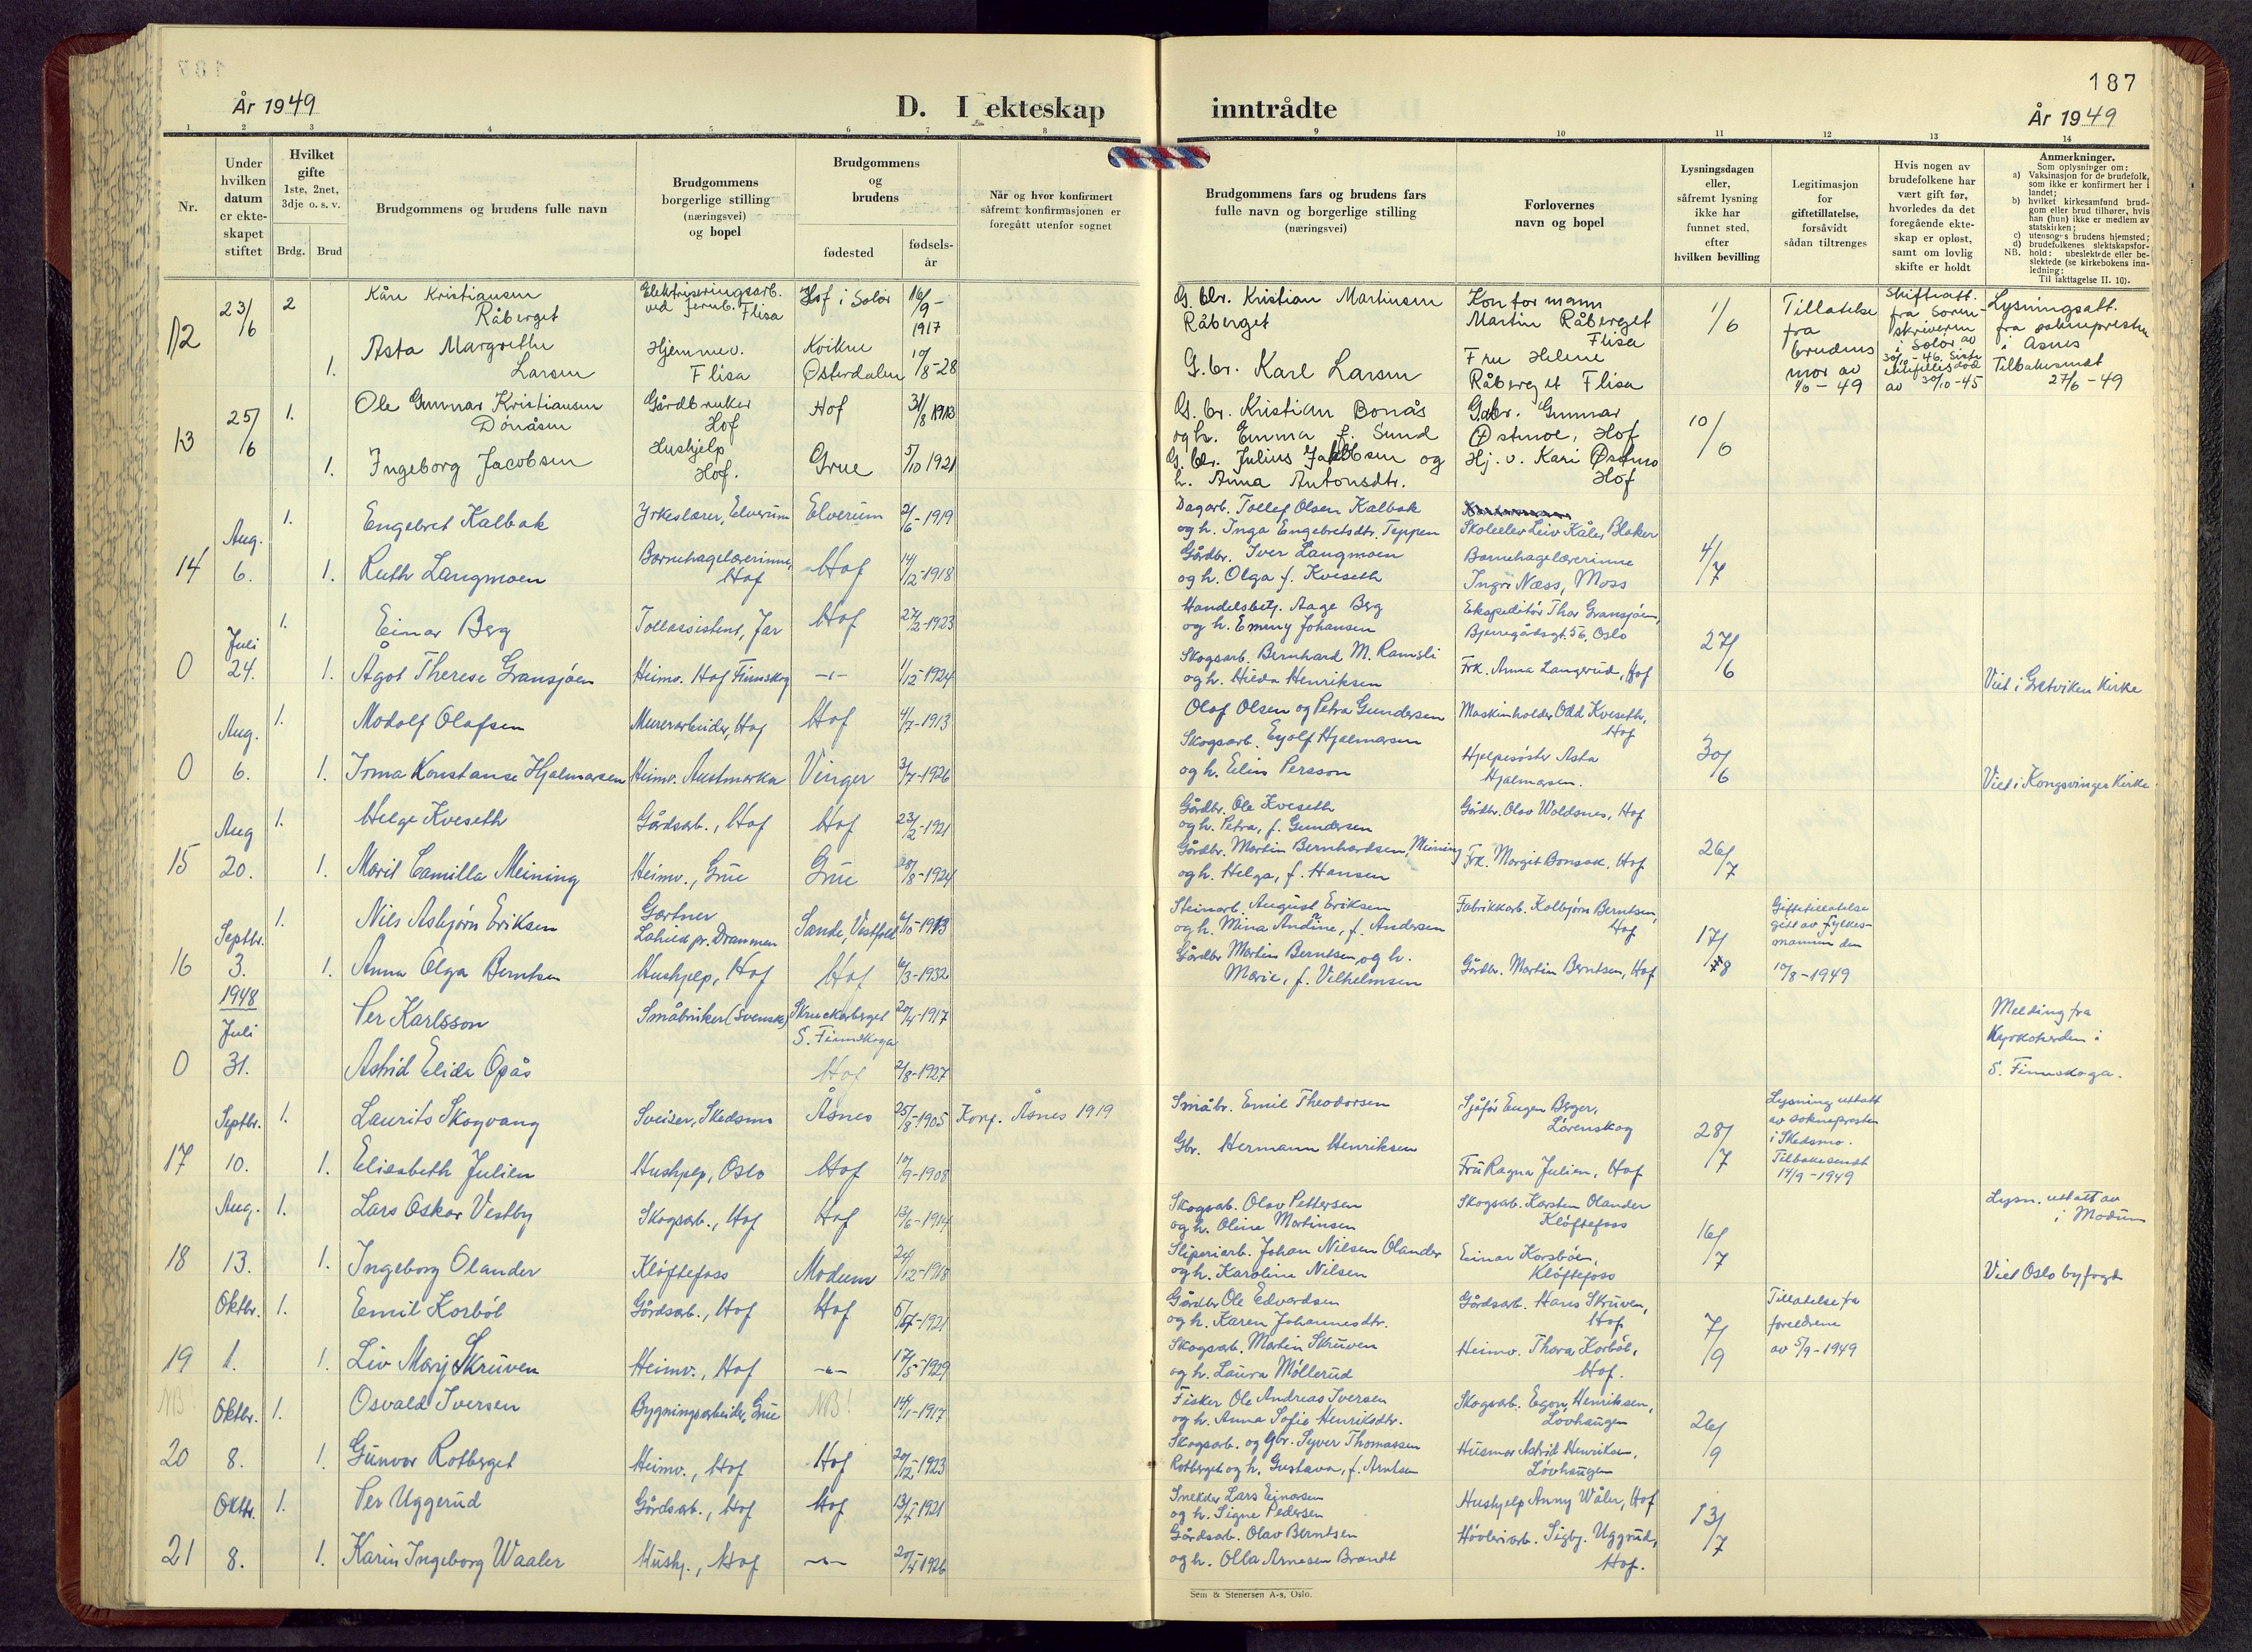 187
År 1949
D. I ekteskap inntrådte
År 1949
1 2 3 4 5 6 7 8 9 10 11 12 13 14
Nr.
Under
hvilken
datum
er ekte-
skapet
stiftet
Hvilket
gifte
1ste, 2net,
3dje o. s. v.
Brdg. Brud
Brudgommens og brudens fulle navn
Brudgommens
borgerlige stilling
(næringsvei)
og bopel
Brudgommens
og
brudens
fødested
fødsels-
år
Når og hvor konfirmert
såfremt konfirmasjonen er
foregått utenfor sognet
Brudgommens fars og brudens fars
fulle navn og borgerlige stilling
(næringsvei)
Forlovernes
navn og bopel
Lysningsdagen
eller,
såfremt lysning
ikke har
funnet sted,
efter
hvilken bevilling
Legitimasjon
for
giftetillatelse,
forsåvidt
sådan tiltrenges
Hvis nogen av
brudefolkene har
vært gift før,
hvorledes da det
foregående ekte-
skap er opløst,
samt om lovlig
skifte er holdt
Anmerkninger.
Som oplysninger om:
a) Vaksinasjon for de brudefolk,
som ikke er konfirmert her i
landet;
b) hvilket kirkesamfund brud-
gom eller brud tilhører, hvis
han (hun) ikke er medlem av
statskirken;
c) utensogns brudens hjemsted;
d) brudefolkenes slektskapsfor-
hold: ubeslektede eller be-
slektede (se kirkebokens inn-
ledning;
NB. Til iakttagelse II. 10).
12
23/6
2
Kåre Kristiansen
Råberget
Elektriseringsarb.
ved jernb. Flisa
Hof i Solør
16/9-1917
G.br. Kristian Martinsen
Råberget
Kontormann
Martin Råberget
Flisa
1/6
Tillatelse
fra
brudens
mor av
1/6-49
Skifteatt.
fra Soren-
skriveren
i Solør av
Lysningsatt.
fra soknepresten
i Åsnes
Tilbakesendt
27/6-49
1.
Asta Margrethe
Larsen
Hjemmev.
Flisa
Kvikne
Østerdalen
10/8-28
G.br. Karl Larsen
Fru Helene
Råberget Flisa
av 30/10-45
13
25/6
1.
Ole Gunnar Kristiansen
Bonåsen
Gårdbruker
Hof
Hof
31/8 1913
G.br. Kristian Bonås
og h. Emma f. Sund
G.br. Gunnar
Østmoe, Hof
10/6
1.
Ingeborg Jacobsen
Hushjelp
Hof.
Grue
5/10 1921
G.br. Julius Jakobsen og
h. Anna Antonsdtr.
Hj.v. Kari Østmo
Hof
14
Aug.
6.
1.
Engebret Kalbak
Yrkeslærer, Elverum
Elverum
2/6-1919
Dagarb. Tollef Olsen Kalbak
og h. Inga Engebretsdtr. Teppen
Skoleelev Leiv Kåles, Blaker
4/7
1.
Ruth Langmoen
Barnehagelærerinne,
Hof
Hof
14/12-1918
Gårdbr. Iver Langmoen
og h. Olga f. Kveseth
Barnehagelærerinne
Ingri Næss, Moss
0
Juli
24.
1.
Einar Berg
Tollassistent, Jar
Hof
27/2-1923
Handelsbetj. Aage Berg
og h. Emmy Johansen
Ekspeditør Thor Gransjøen,
Bjerregårdsgt. 56, Oslo
27/6
1.
Ågot Therese Gransjøen
Heimv. Hof Finnskog
-"-
1/12-1924
Skogsarb. Bernhard M. Ramsli
og h. Hilda Henriksen
Frk. Anna Langerud, Hof
Viet i Grøtviken Kirke
0
Aug.
6.
1.
Modolf Olafsen
Murerarbeider, Hof
Hof
4/7-1913
Olaf Olsen og Petra Gundersen
Maskinholder Odd Kveseth,
Hof
30/6
1.
Irma Konstanse Hjalmarsen
Heimv. Austmarka
Vinger
3/7-1926
Skogsarb. Eyolf Hjalmarsen
og h. Elin Persson
Hjelpesøster Asta
Hjalmarsen.
Viet i Kongsvinger Kirke
15
Aug
20.
1.
Helge Kveseth
Gårdsarb., Hof
Hof
23/2-1921
Gårdbr. Ole Kveseth
og h. Petra, f. Gundersen
Gårdbr. Olav Woldsnes, Hof
26/7
1.
Marit Camilla Meining
Heimv., Grue
Grue
25/8-1924
Gårdbr. Martin Bernhardsen, Meining
og h. Helga, f. Hansen
Frk. Margit Bonsak, Hof
16
Septbr.
3.
1.
Nils Asbjørn Eriksen
Gartner
Låhild pr. Drammen
Sande, Vestfold
6/10-1913
Steinarb. August Eriksen
og h. Mina Andine, f. Andersen
Fabrikkarb. Kolbjørn Berntsen,
Hof
17/8
Giftetillatelse
gitt av fylkes-
mannen den
10/8-1949
1.
Anna Olga Berntsen
Hushjelp, Hof
Hof
6/3-1932
Gårdbr. Martin Berntsen og h.
Marie, f. Vilhelmsen
Gårdbr. Martin Berntsen, Hof
0
1948
Juli
31.
Per Karlsson
Småbruker (Svensk)
Skruckarberget
S. Finnskoga
20/4-1917
Melding fra
Kyrkoherden i
S. Finnskoga.
Astrid Elida Opås
Hof
2/8-1927
17
Septbr.
10.
1.
Laurits Skogvang
Sveiser, Skedsmo
Åsnes
25/8-1905
Konf. Åsnes 1919
Småbr. Emil Theodorsen
Sjåfør Eugen Berger,
Lørenskog
28/7
Lysning uttatt
av sokneprosten
i Skedsmo.
Tilbakesendt
14/9-1949
1.
Elisabeth Julien
Hushjelp, Oslo
Hof
10/9-1908
Gbr. Hermann Henriksen
Fru Ragna Julien, Hof
18
Aug.
13.
1.
Lars Oskar Vestby
Skogsarb., Hof
Hof
13/6-1914
Skogsarb. Olav Pettersen
og h. Oline Martinsen
Skogsarb. Karsten Olander
Kløftefoss
16/7
Lysn. uttatt av
i Modum
1.
Ingeborg Olander
Kløftefoss
Modum
24/12-1918
Sliperiarb. Johan Nilsen Olander
og h. Karoline Nilsen
Einar Korsbøen,
Kløftefoss
Viet Oslo byfogd
19
Oktbr.
1.
1.
Emil Korbøl
Gårdsarb., Hof
Hof
Gårdbr Ole Edvardsen
og h. Karen Johannesdtr.
Gårdsarb. Hans Skruven,
Hof
7/9
Tillatelse fra
foreldrene
av 5/9-1949
1.
Liv Marj Skruven
Heimv., Hof
-"-
17/5-1929
Skogsarb. Martin Skruven
og h. Laura Møllerud
Heimv. Thora Korbøl,
Hof.
NB!
20
Oktbr.
8.
1.
Osvald Iversen
Bygningsarbeider, Grue
NB!
14/1-1917
Fisker Ole Andreas Iversen
og h. Anna Sofie Henriksdtr.
Skogsarb. Egon Henriksen,
Lovhaugen
26/9
1.
Gunvor Rotberget
Heimv., Hof
Hof
20/12-1923
Skogsarb. og Gbr. Syver Thomassen
Rotberget og h. Gustava, f. Arntsen
Husmor Astrid Henriksen,
Lovhaugen
21
Oktbr.
8.
1.
Per Uggerud
Gårdsarb., Hof
Hof
Snekker Lars Einarsen
og h. Signe Pedersen
Hushjelp Anny Wåler, Hof
13/7
1.
Karin Ingeborg Waaler
Hushj., Hof
-"-
Gårdsarb. Olav Berntsen
og h. Olla Arnesen Brandt
Høvleriarb. Sigbj. Uggerud,
Hof.
Sem & Stenersen A-s, Oslo.